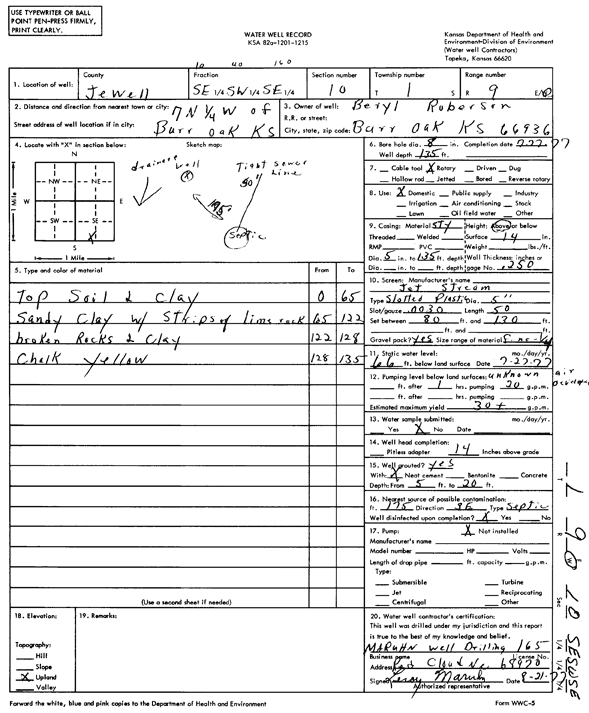 USE TYPEWRITER OR BALL
POINT PEN-PRESS FIRMLY,
PRINT CLEARLY.
WATER WELL RECORD
KSA 82a-1201-1215
Kansas Department of Health and
Environment-Division of Environment
(Water well Contractors)
Topeka, Kansas 66620
10 40 160
1. Location of well:
County
Jewell
Fraction
SE 1/4 SW 1/4 SE 1/4
Section number
10
Township number
T 1 S
Range number
R 9 E/W
2. Distance and direction from nearest town or city: 7 N 1/4 W of
Street address of well location if in city: Burr Oak KS
3. Owner of well: Beryl Roberson
R.R. or street:
City, state, zip code: Burr Oak KS 66936
4. Locate with "X" in section below:
Sketch map:
N
NW NE
W E
SW SE
X
S
1 Mile
1 Mile
drainage
well
Tight sewer
Line
50"
175
Septic
5. Type and color of material
From To
Top Soil & Clay 0 65
Sandy Clay w/ Strips of lime rock 65 122
broken Rocks & Clay 122 128
Chalk yellow 128 135
(Use a second sheet if needed)
6. Bore hole dia. 8 in. Completion date 7-22-77
Well depth 135 ft.
7. Cable tool X Rotary Driven Dug
Hollow rod Jetted Bored Reverse rotary
8. Use: X Domestic Public supply Industry
Irrigation Air conditioning Stock
Lawn Oil field water Other
9. Casing: Material Sty Height: Above or below
Threaded Welded Surface 14 in.
RMP PVC Weight lbs./ft.
Dia. 5 in. to 135 ft. depth Wall Thickness: inches or
Dia. in. to ft. depth gage No. .250
10. Screen: Manufacturer's name
Jet Stream
Type Slotted Plastic Dia. 5"
Slot/gauze .0030 Length 50
Set between 80 ft. and 130 ft.
ft. and ft.
Gravel pack? yes Size range of material
11. Static water level: mo./day/yr.
66 ft. below land surface Date 7-22-77
12. Pumping level below land surface: unknown
air
ft. after 1 hrs. pumping 20 g.p.m.
ft. after hrs. pumping g.p.m.
Estimated maximum yield 30+ g.p.m.
13. Water sample submitted: mo./day/yr.
Yes X No Date
14. Well head completion:
Pitless adapter 14 Inches above grade
15. Well grouted? yes
With: X Neat cement Bentonite Concrete
Depth: From 5 ft. to 20 ft.
16. Nearest source of possible contamination:
ft. 175 Direction SE Type Septic
Well disinfected upon completion? X Yes No
17. Pump: X Not installed
Manufacturer's name
Model number HP Volts
Length of drop pipe ft. capacity g.p.m.
Type:
Submersible Turbine
Jet Reciprocating
Centrifugal Other
18. Elevation:
Topography:
Hill
Slope
X Upland
Valley
19. Remarks:
20. Water well contractor's certification:
This well was drilled under my jurisdiction and this report
is true to the best of my knowledge and belief.
MARUHN Well Drilling 165
Business name License No.
Address Red Cloud Ne. 68970
Signed Leroy Maruhn Date 9-21-77
Authorized representative
T 1 R 9 W Sec 10 SE SW SE
1/4 1/4 1/4
Forward the white, blue and pink copies to the Department of Health and Environment
Form WWC-5